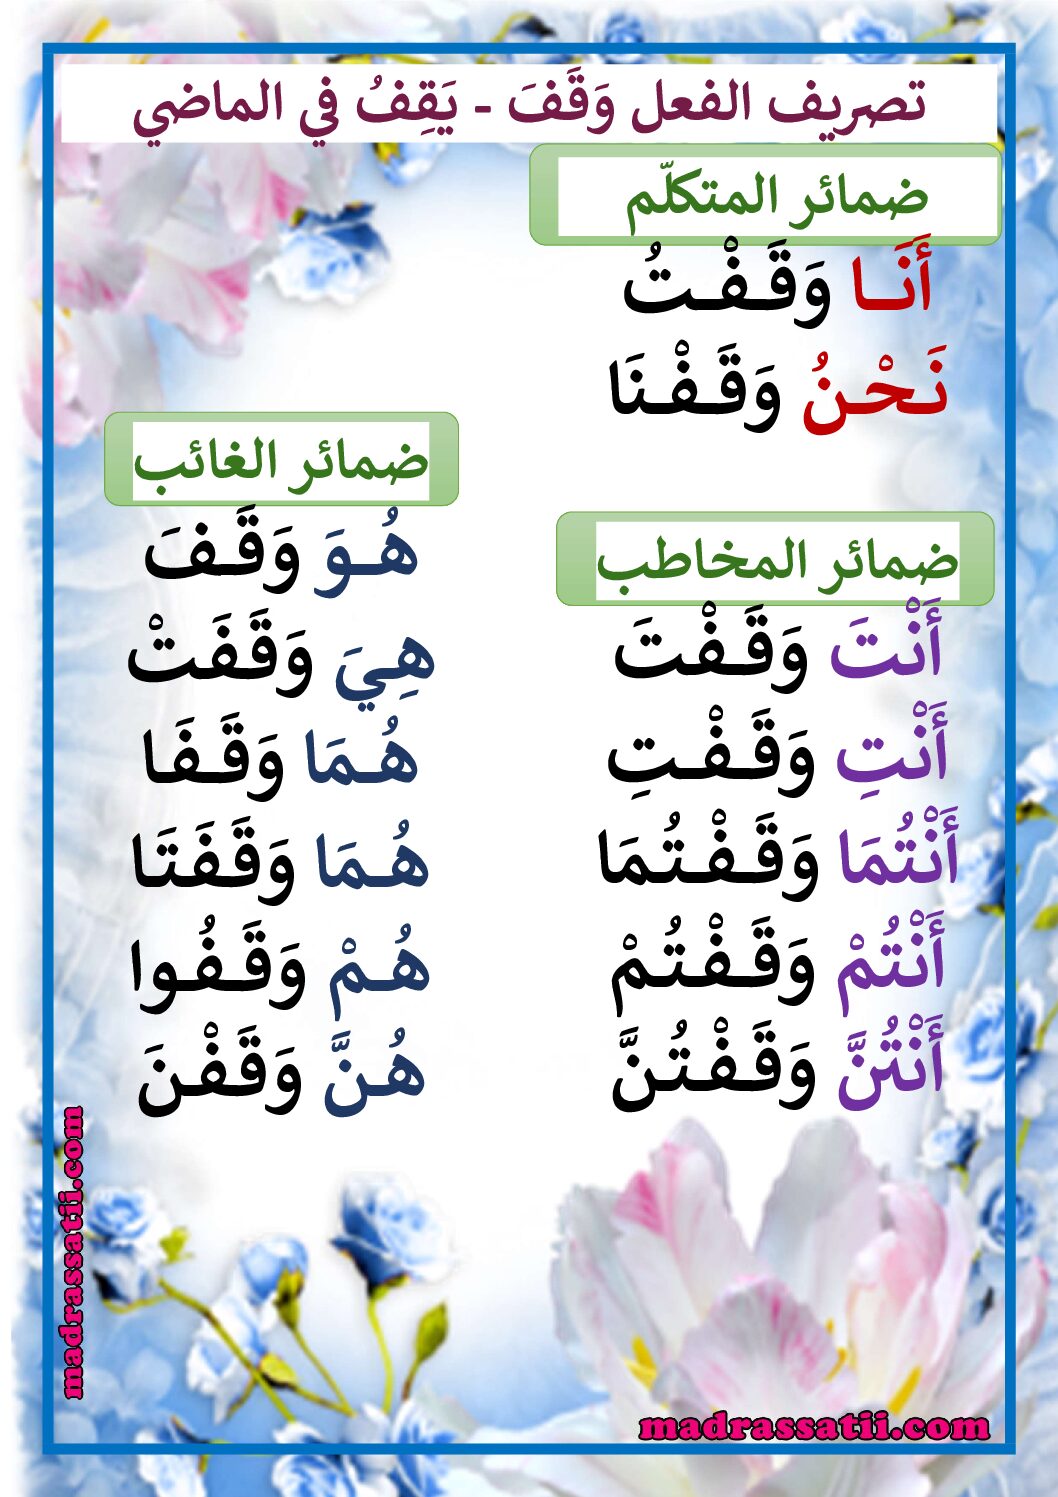 تصريف الفعل وَقَفَ - يَقِفُ في الماضي
ضمائر المتكلّم
أَنَـا وَقَـفْـتُ
نَـحْـنُ وَقَـفْـنَا
ضمائر المخاطب
أَنْتَ وَقَـفْـتَ
أَنْتِ وَقَـفْـتِ
أَنْتُمَا وَقَـفْـتُمَا
أَنْتُمْ وَقَـفْـتُمْ
أَنْتُنَّ وَقَـفْـتُنَّ
ضمائر الغائب
هُـوَ وَقَـفَ
هِيَ وَقَـفَـتْ
هُـمَا وَقَـفَـا
هُـمَا وَقَـفَـتَا
هُـمْ وَقَـفُـوا
هُـنَّ وَقَـفْـنَ
madrassatii.com
madrassatii.com